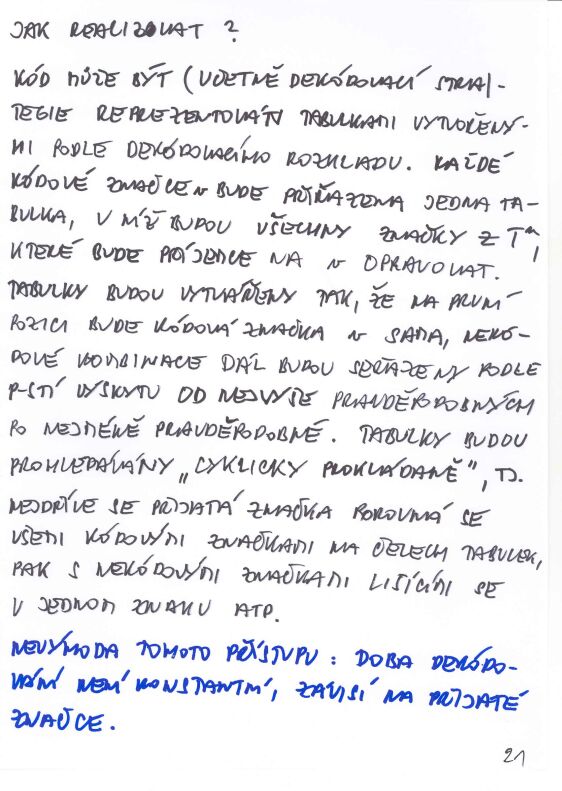 JAK REALIZOVAT ?
KÓD MŮŽE BÝT (VČETNĚ DEKÓDOVACÍ STRA)-
TEGIE REPREZENTOVÁN TABULKAMI VYTVOŘENÝ-
MI PODLE DEKÓDOVACÍHO ROZKLADU. KAŽDÉ
KÓDOVÉ ZNAČCE v BUDE PŘIŘAZENA JEDNA TA-
BULKA, V NÍŽ BUDOU VŠECHNY ZNAČKY Z Tⁿ,
KTERÉ BUDE PŘÍJEMCE NA v OPRAVOVAT.
TABULKY BUDOU VYTVÁŘENY TAK, ŽE NA PRVNÍ
POZICI BUDE KÓDOVÁ ZNAČKA v SAMA, NEKÓ-
DOVÉ KOMBINACE DÁL BUDOU SEŘAZENY PODLE
P-STÍ VÝSKYTU OD NEJVÝŠE PRAVDĚPODOBNÝCH
PO NEJMÉNĚ PRAVDĚPODOBNÉ. TABULKY BUDOU
PROHLEDÁVÁNY „CYKLICKY PROKLÁDANĚ", TJ.
NEJDŘÍVE SE PŘIJATÁ ZNAČKA POROVNÁ SE
VŠEMI KÓDOVÝMI ZNAČKAMI NA ČELECH TABULEK,
PAK S NEKÓDOVÝMI ZNAČKAMI LIŠÍCÍMI SE
V JEDNOM ZNAKU ATP.
NEVÝHODA TOHOTO PŘÍSTUPU : DOBA DEKÓDO-
VÁNÍ NENÍ KONSTANTNÍ, ZÁVISÍ NA PŘIJATÉ
ZNAČCE.
21